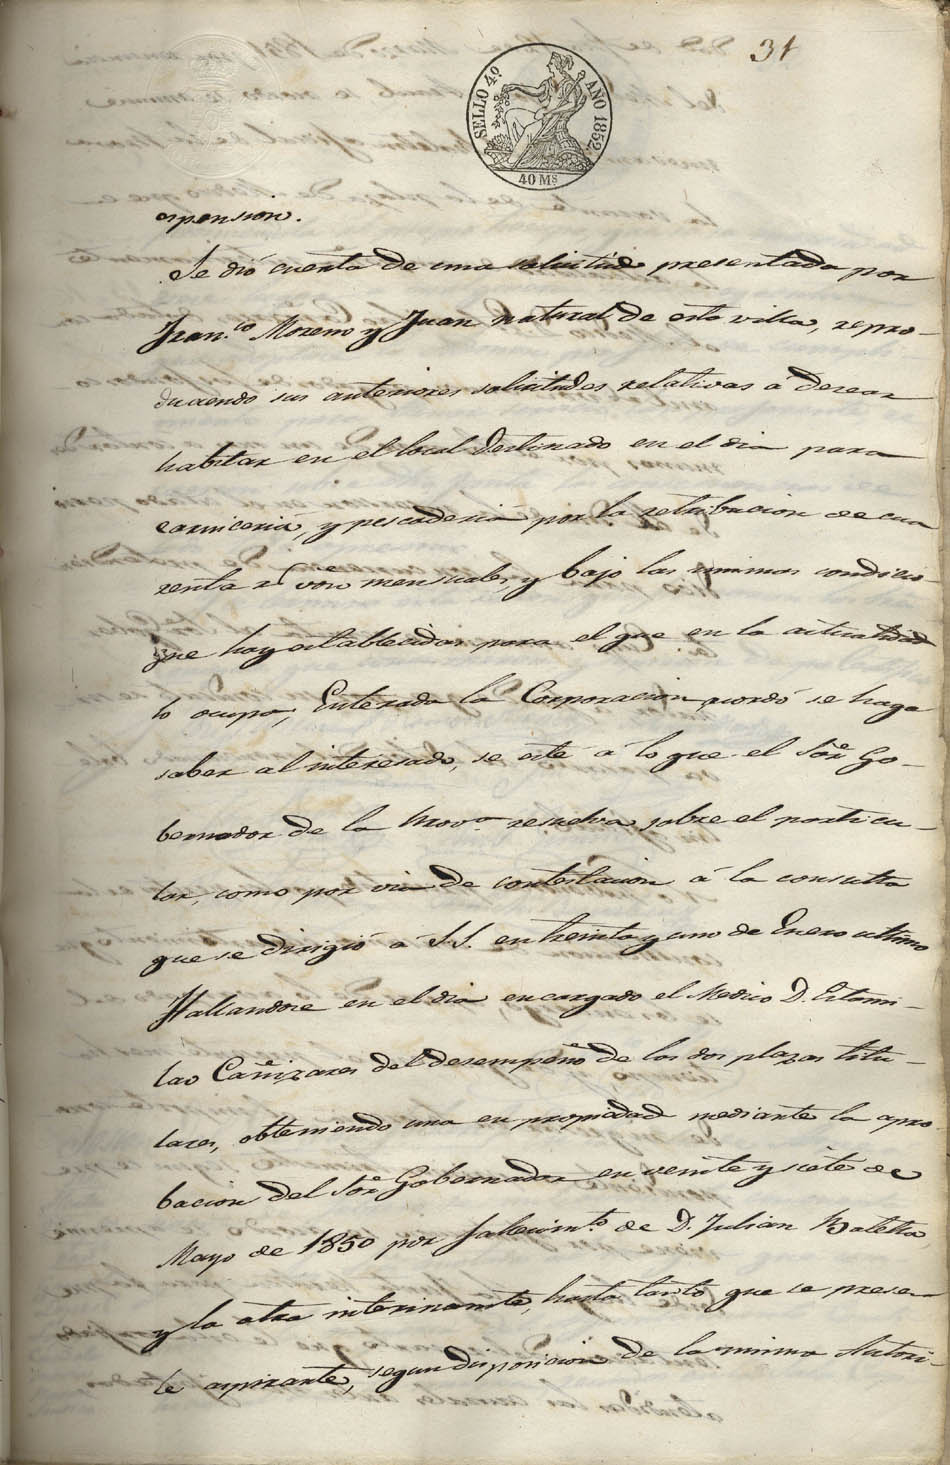 31
SELLO 4º AÑO 1852.
40 Ms
espension.
Se dió cuenta de una solicitud presentada por
Fran.co Moreno y Juan natural de esta villa, repro-
duciendo sus anteriores solicitudes relativas á desear
habitar en el local destinado en el dia para
carniceria, y pescaderia por la retribucion de cua
renta rs von mensuales, y bajo las mismas condicio-
que hay establecidas para el que en la actualidad
lo ocupa, Enterada la Corporacion acordó se haga
saber al interesado, se esté á lo que el Sor Go-
bernador de la Prov.a resuelva sobre el particu-
lar, como por via de contestacion á la consulta
que se dirigió á S.S. en treinta y uno de Enero ultimo
Hallandose en el dia encargado el Medico D. Estanis-
lao Cañizares del desempeño de las dos plazas titu-
lares, obteniendo una en propiedad mediante la apro-
bacion del Sor Gobernador en veinte y siete de
Mayo de 1850 por fallecim.to de D. Julian
y la otra interinamte, hasta tanto que se presen
te aspirante, segun disposicion de la misma Autori-